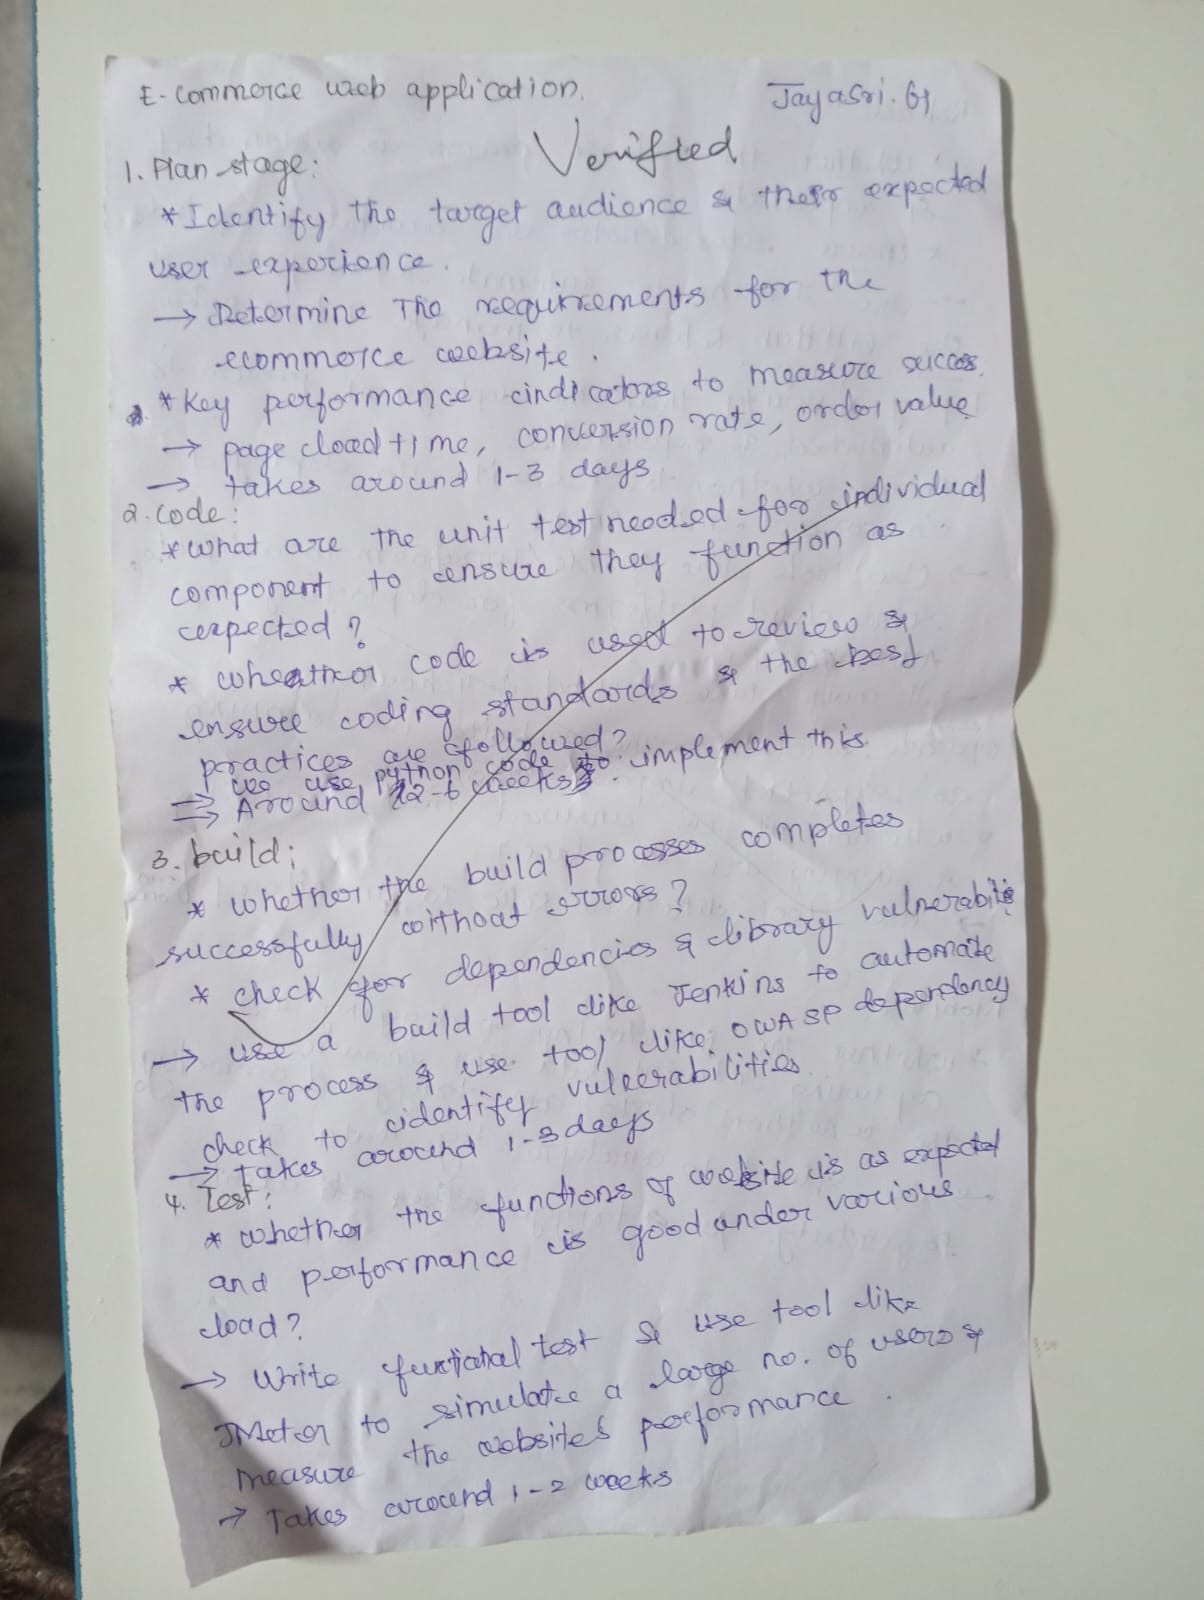 E-commerce web application.
Jayasri. G
Verified
1. Plan stage:
* Identify the target audience & their expected
user experience.
→ Determine The requirements for the
ecommerce website.
* Key performance indicators to measure succes.
→ page load time, conversion rate, order value
→ takes around 1-3 days
2. code:
* what are the unit test needed for individual
component to ensure they function as
expected?
* wheather code is used to review &
ensure coding standards & the best
practices are followed?
⇒ we use python code to implement this
⇒ Around 2-6 weeks.
3. build:
* whether the build processes completes
successfully without errors?
* check for dependencies & library vulnerabilis
→ use a build tool like Jenkins to automate
the process & use tool like OWASP dependency
check to identify vulnerabilities.
→ takes around 1-3 days
4. Test:
* whether the functions of website is as expected
and performance is good under various
load?
→ Write functional test & use tool like
JMeter to simulate a large no. of users &
measure the website's performance.
→ Takes around 1-2 weeks